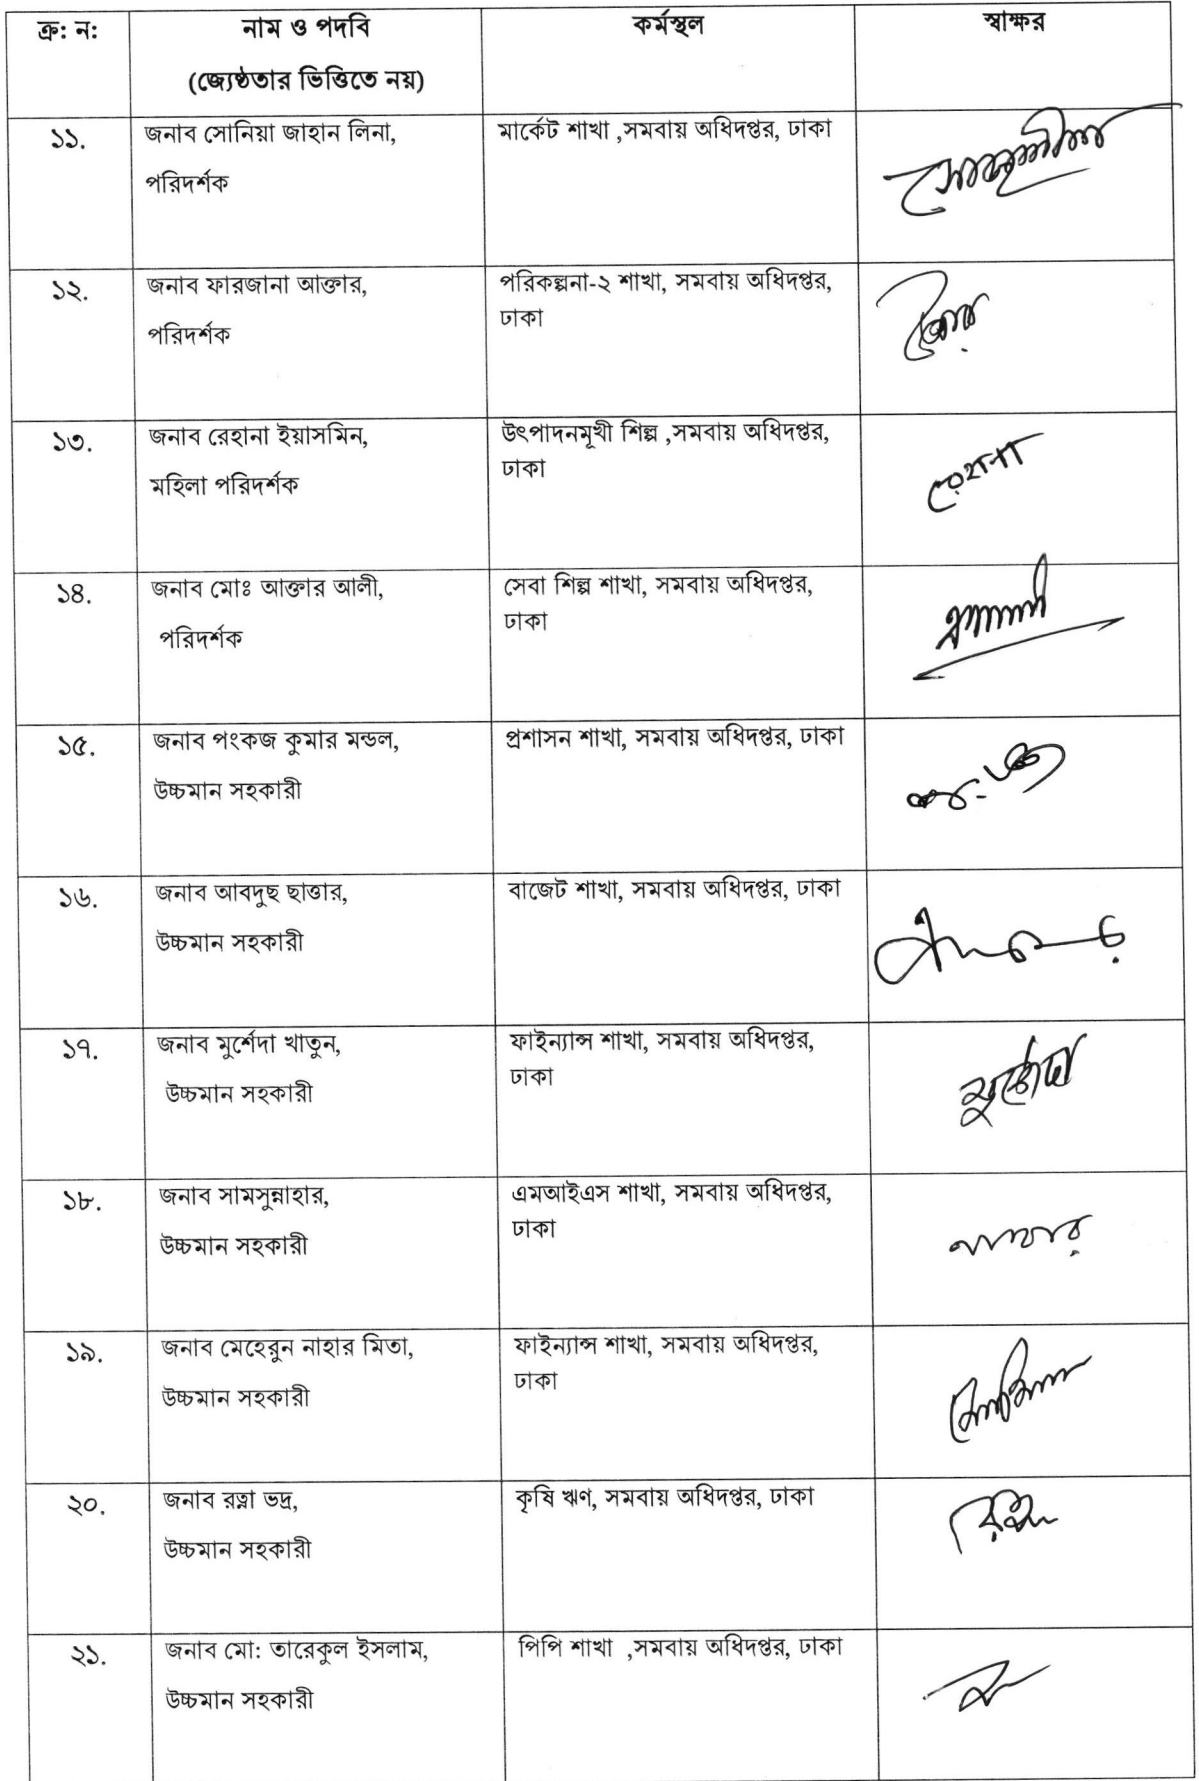 ক্র: ন:
নাম ও পদবি
(জ্যেষ্ঠতার ভিত্তিতে নয়)
কর্মস্থল
স্বাক্ষর
১১.
জনাব সোনিয়া জাহান লিনা,
পরিদর্শক
মার্কেট শাখা ,সমবায় অধিদপ্তর, ঢাকা
১২.
জনাব ফারজানা আক্তার,
পরিদর্শক
পরিকল্পনা-২ শাখা, সমবায় অধিদপ্তর,
ঢাকা
১৩.
জনাব রেহানা ইয়াসমিন,
মহিলা পরিদর্শক
উৎপাদনমূখী শিল্প ,সমবায় অধিদপ্তর,
ঢাকা
রেহানা
১৪.
জনাব মোঃ আক্তার আলী,
পরিদর্শক
সেবা শিল্প শাখা, সমবায় অধিদপ্তর,
ঢাকা
১৫.
জনাব পংকজ কুমার মন্ডল,
উচ্চমান সহকারী
প্রশাসন শাখা, সমবায় অধিদপ্তর, ঢাকা
১৬.
জনাব আবদুছ ছাত্তার,
উচ্চমান সহকারী
বাজেট শাখা, সমবায় অধিদপ্তর, ঢাকা
১৭.
জনাব মুর্শেদা খাতুন,
উচ্চমান সহকারী
ফাইন্যান্স শাখা, সমবায় অধিদপ্তর,
ঢাকা
মুর্শেদা
১৮.
জনাব সামসুন্নাহার,
উচ্চমান সহকারী
এমআইএস শাখা, সমবায় অধিদপ্তর,
ঢাকা
১৯.
জনাব মেহেরুন নাহার মিতা,
উচ্চমান সহকারী
ফাইন্যান্স শাখা, সমবায় অধিদপ্তর,
ঢাকা
২০.
জনাব রত্না ভদ্র,
উচ্চমান সহকারী
কৃষি ঋণ, সমবায় অধিদপ্তর, ঢাকা
২১.
জনাব মো: তারেকুল ইসলাম,
উচ্চমান সহকারী
পিপি শাখা ,সমবায় অধিদপ্তর, ঢাকা